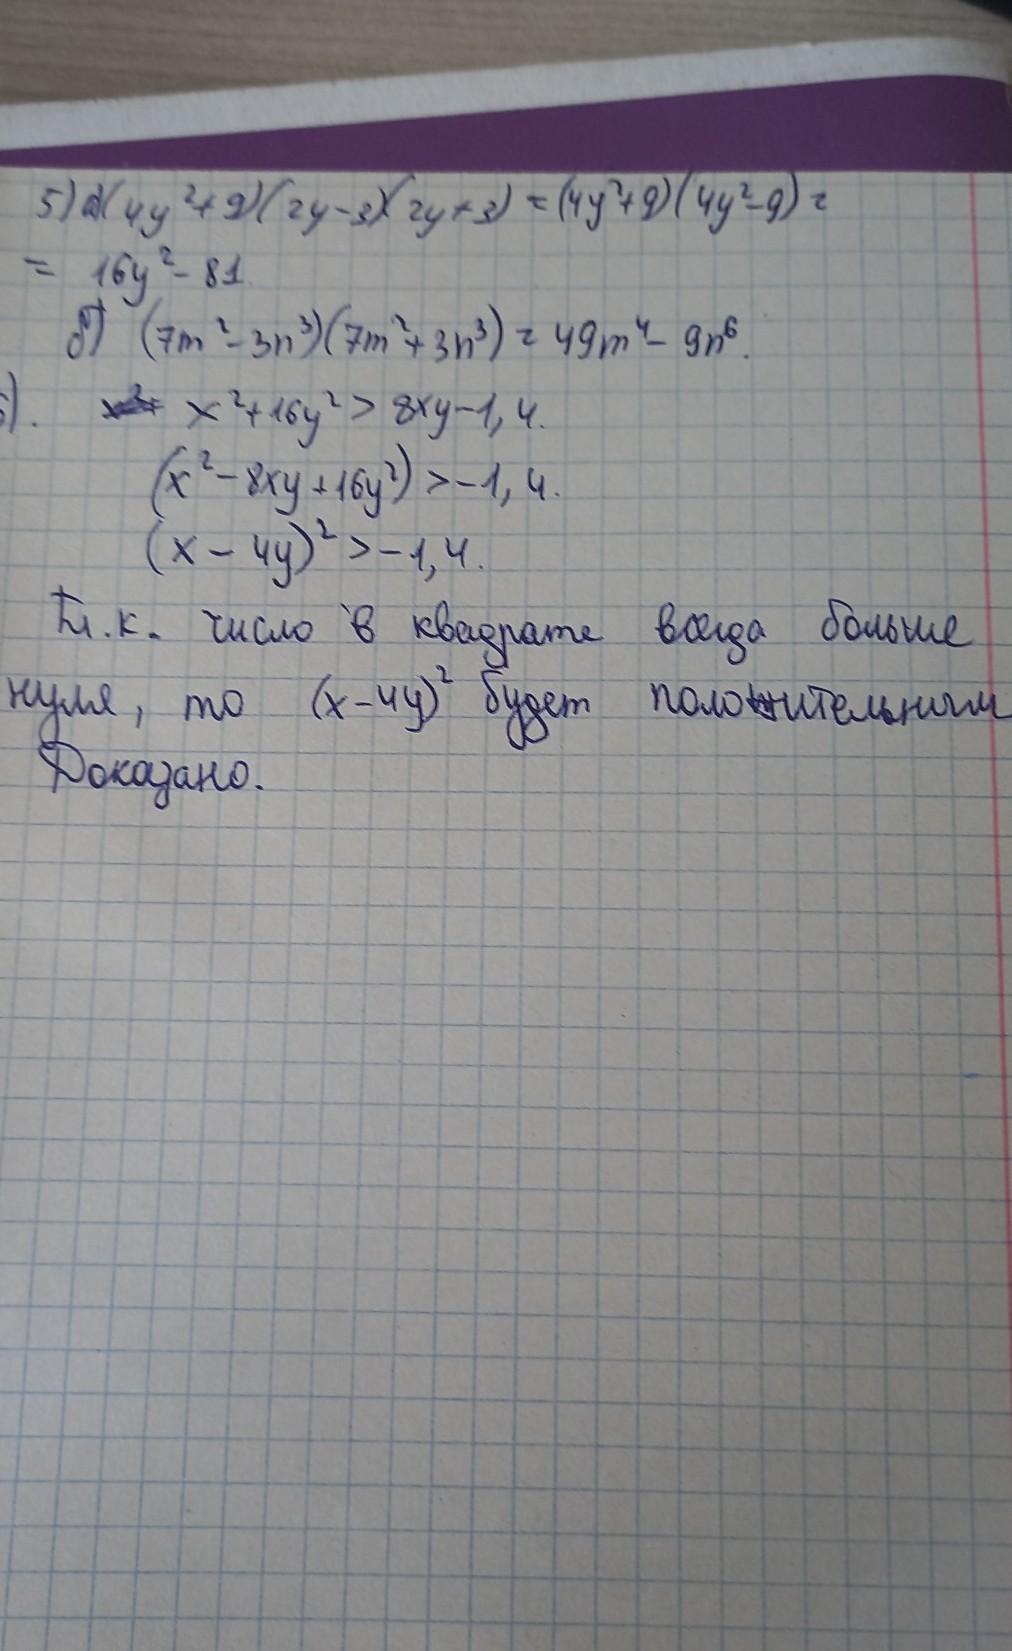 5) а) (4y²+9)(2y-3)(2y+3) = (4y²+9)(4y²-9) =
= 16y² - 81.
б) (7m²-3n³)(7m²+3n³) = 49m⁴ - 9n⁶.
). x²+16y² > 8xy-1,4.
(x²-8xy+16y²) > -1,4.
(x-4y)² > -1,4.
Т.к. число в квадрате всегда больше
нуля, то (x-4y)² будет положительным
Доказано.